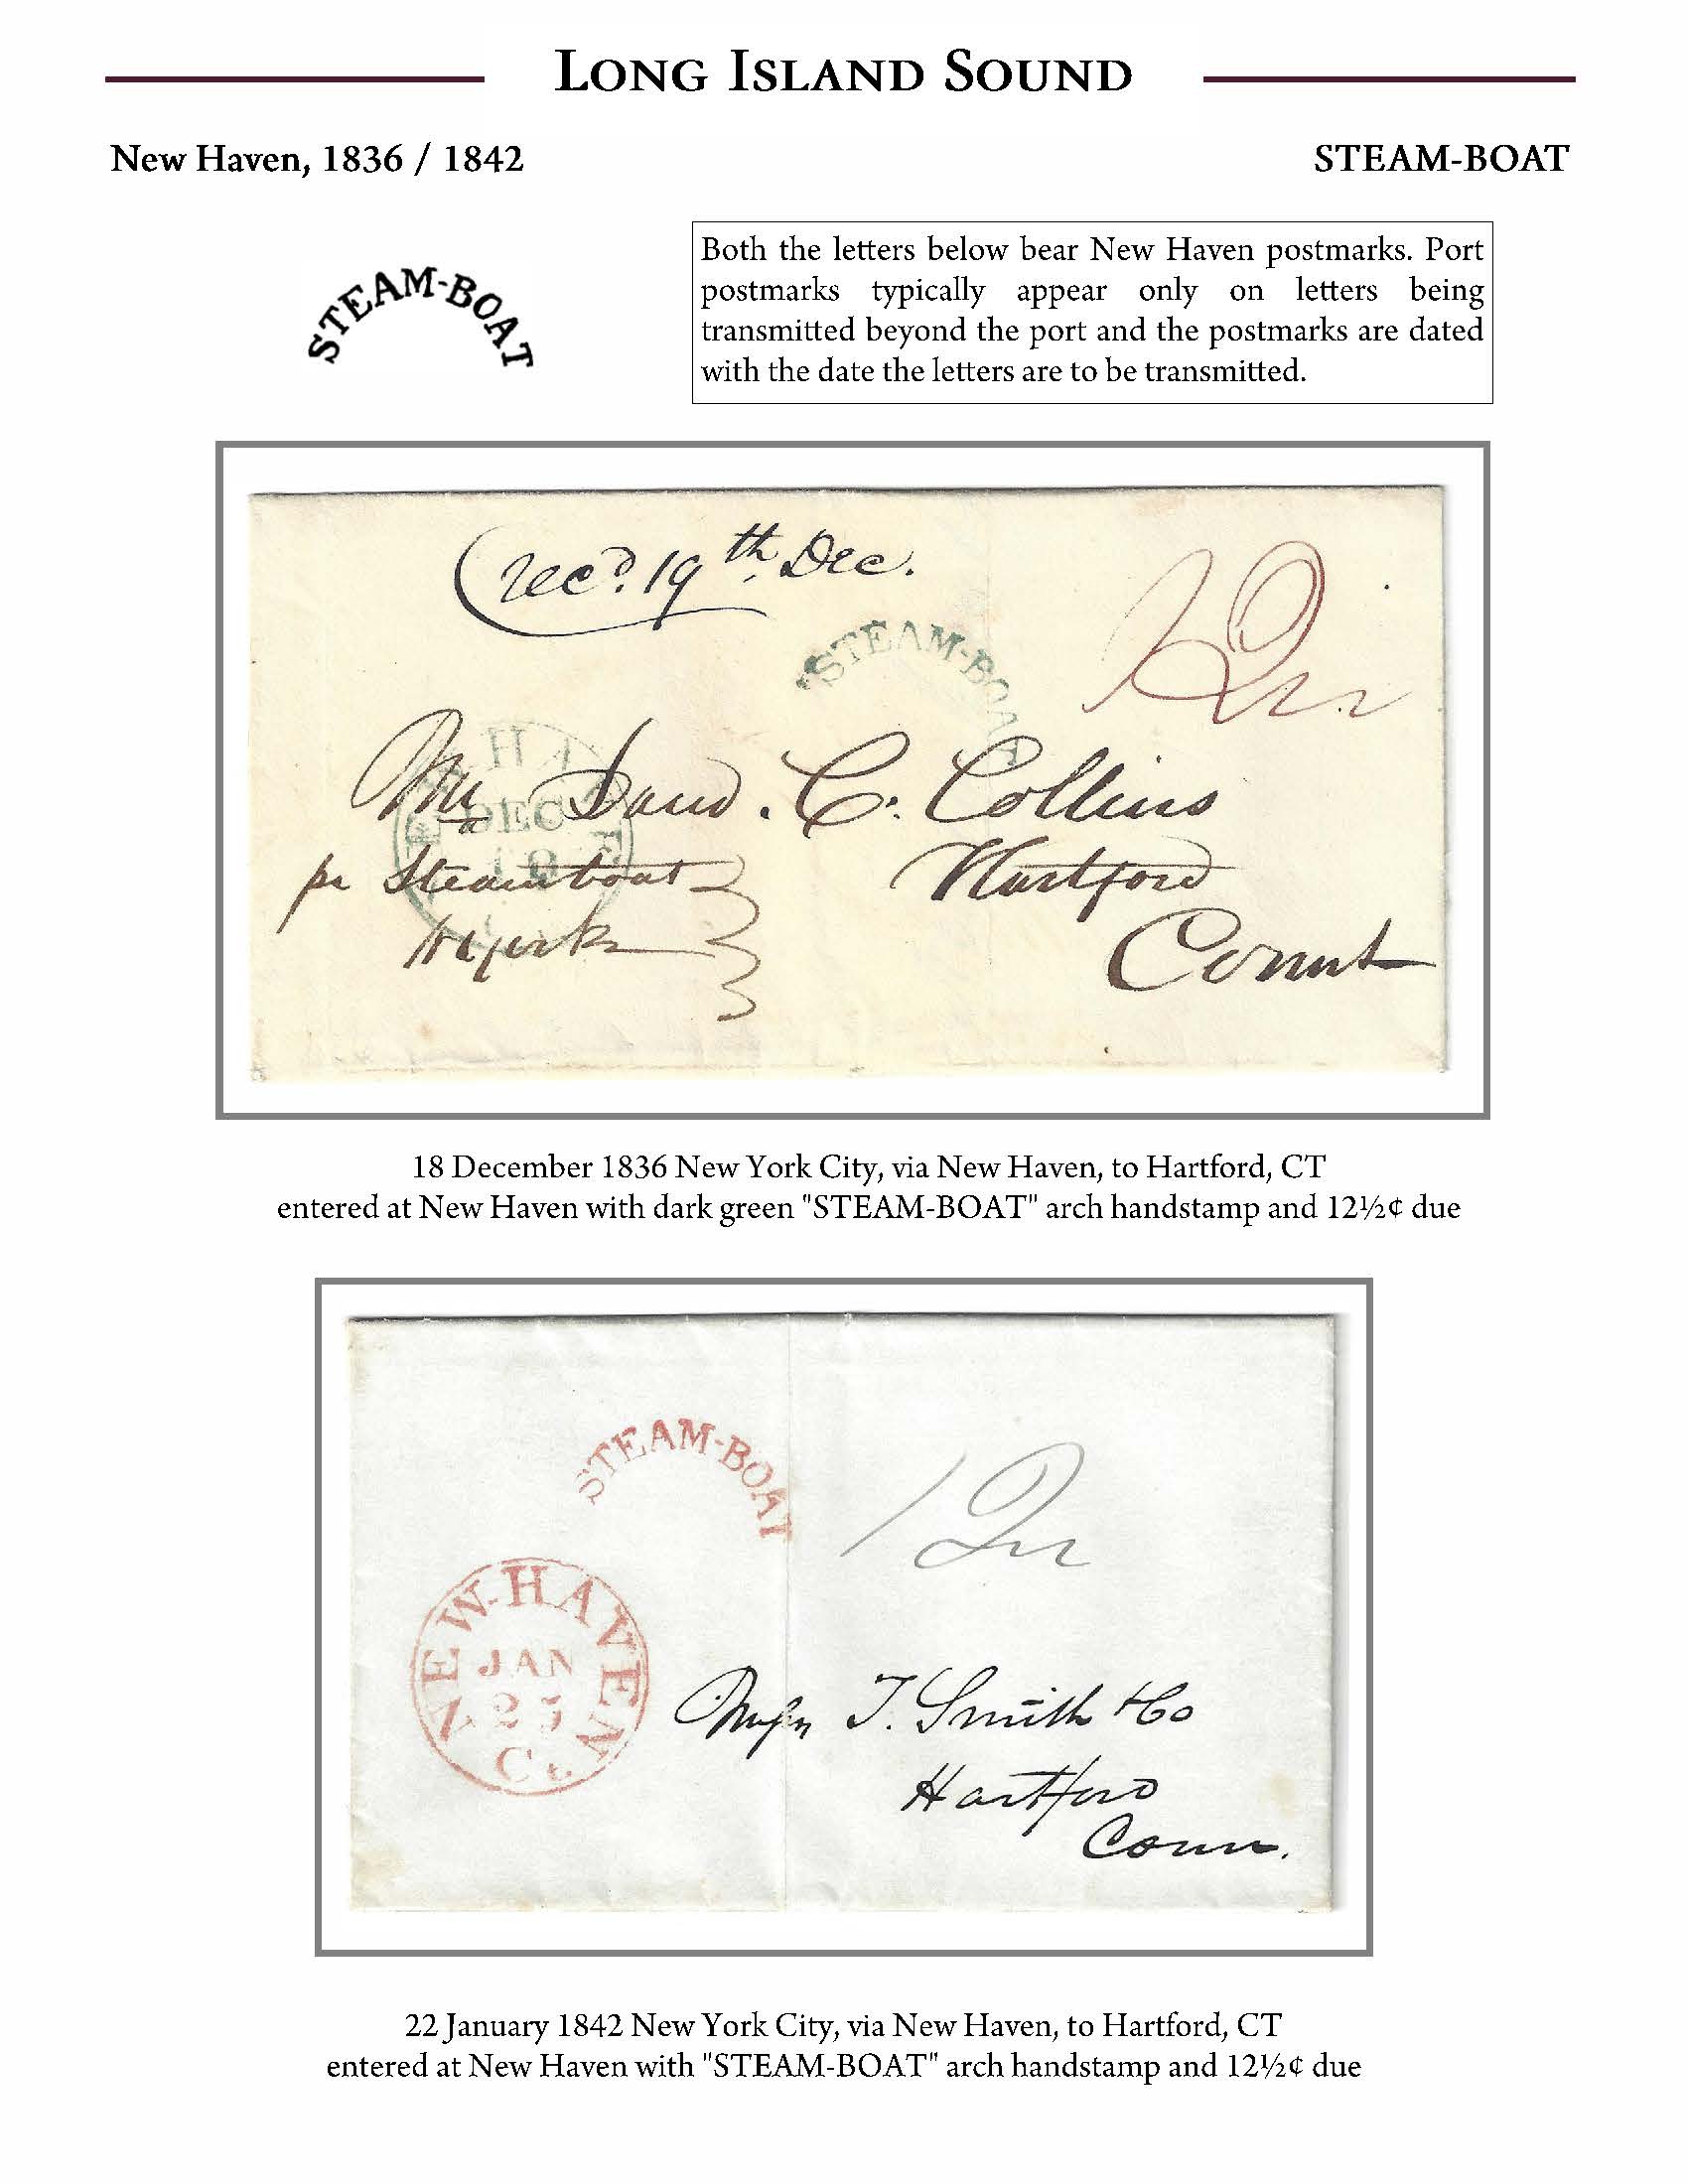 LONG ISLAND SOUND
New Haven, 1836 / 1842
STEAM-BOAT
STEAM-BOAT
Both the letters below bear New Haven postmarks. Port
postmarks typically appear only on letters being
transmitted beyond the port and the postmarks are dated
with the date the letters are to be transmitted.
Recd. 19th Dec.
STEAM-BOAT
12½
DEC
18
Mr David C. Collins
pr Steamboat
Hartford
NYork
Connt
18 December 1836 New York City, via New Haven, to Hartford, CT
entered at New Haven with dark green "STEAM-BOAT" arch handstamp and 12½¢ due
STEAM-BOAT
12½
NEW-HAVEN
JAN
25
Ct.
Messrs T. Smith & Co
Hartford
Conn.
22 January 1842 New York City, via New Haven, to Hartford, CT
entered at New Haven with "STEAM-BOAT" arch handstamp and 12½¢ due